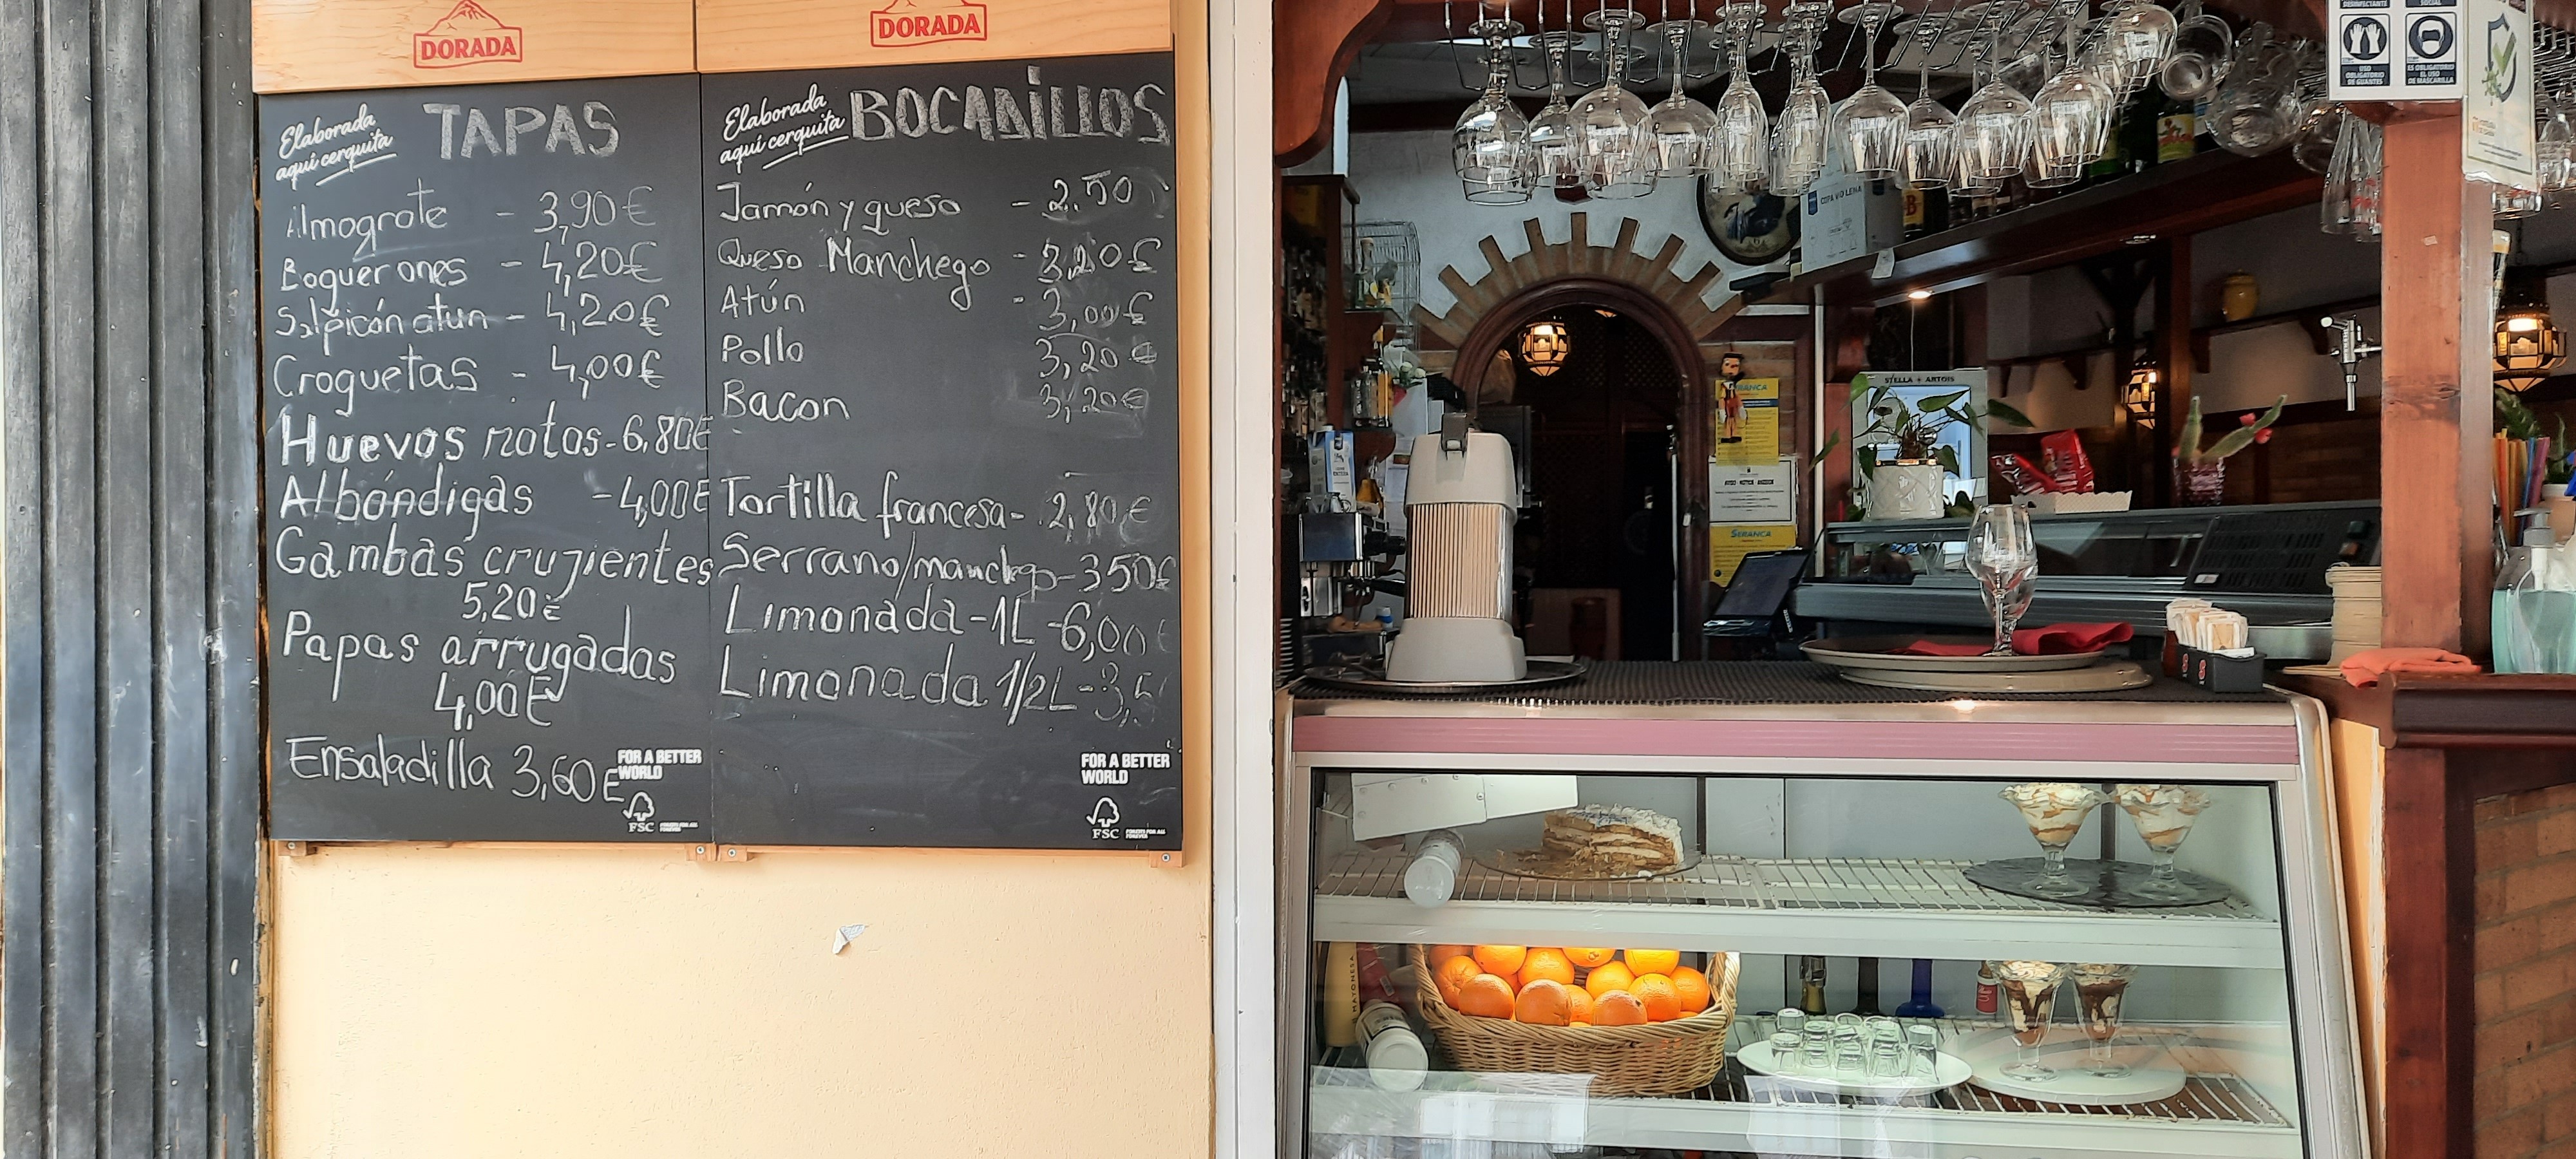 DORADA
Elaborada
aquí cerquita
TAPAS
Almogrote - 3,90€
Boquerones - 4,20€
Salpicón atun - 4,20€
Croquetas - 4,00€
Huevos rotos - 6,80€
Albóndigas - 4,00€
Gambas crujientes
5,20€
Papas arrugadas
4,00€
Ensaladilla 3,60€
FOR A BETTER
WORLD
FSC
DORADA
Elaborada
aquí cerquita
BOCADiLLOS
Jamón y queso - 2.50
Queso Manchego - 3,20€
Atún - 3,00€
Pollo 3,20€
Bacon 3,20€
Tortilla francesa - 2,80€
Serrano/manchego - 350€
Limonada - 1L - 6,00€
Limonada 1/2L - 3,5
FOR A BETTER
WORLD
FSC
USO
OBLIGATORIO
DE GUANTES
ES OBLIGATORIO
EL USO
DE MASCARILLA
STELLA ARTOIS
SERANCA
MAYONESA